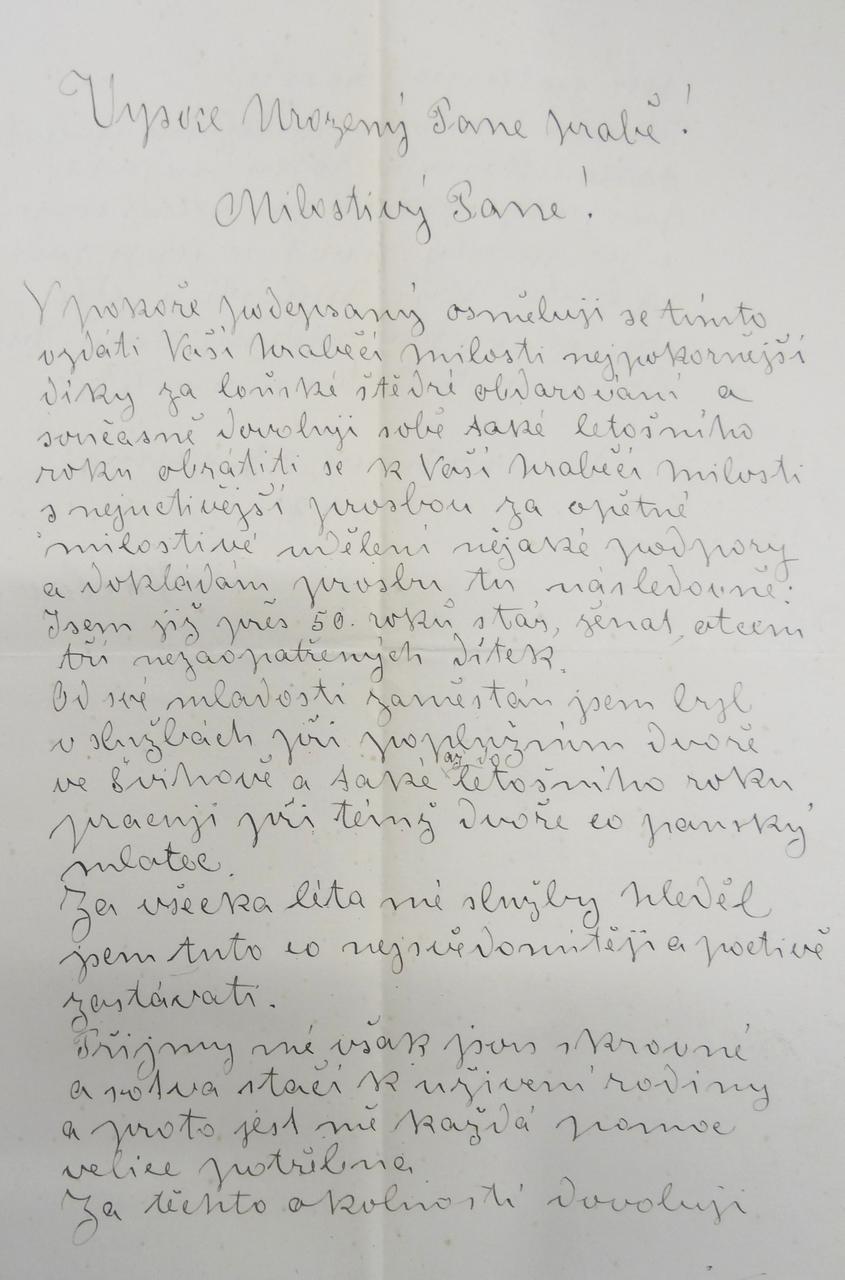 Vysoce Urozený Pane hrabě!
Milostivý Pane!
V pokoře podepsaný osměluji se tímto
vzdáti Vaší hraběcí milosti nejpokornější
díky za loňské štědré obdarování a
současně dovoluji sobě také letošního
roku obrátiti se k Vaší hraběcí milosti
s nejuctivější prosbou za opětné
milostivé udělení nějaké podpory
a dokládám prosbu tu následovně:
Jsem již přes 50. roků stár, ženat, otcem
tří nezaopatřených dítek.
Od své mladosti zaměstán jsem byl
v službách při poplužním dvoře
až do
ve Švihově a také letošního roku
pracuji při témž dvoře co panský
mlatec.
Za všecka léta mé služby hleděl
jsem tuto co nejsvědomitěji a poctivě
zastávati.
Příjmy mé však jsou skrovné
a sotva stačí k uživení rodiny
a proto jest mě každá pomoc
velice potřebna
Za těchto okolností dovoluji